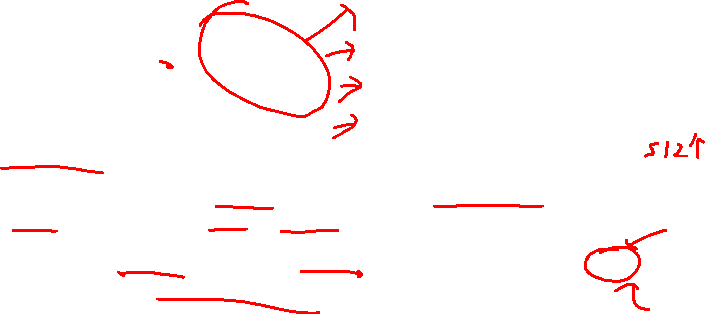 512个